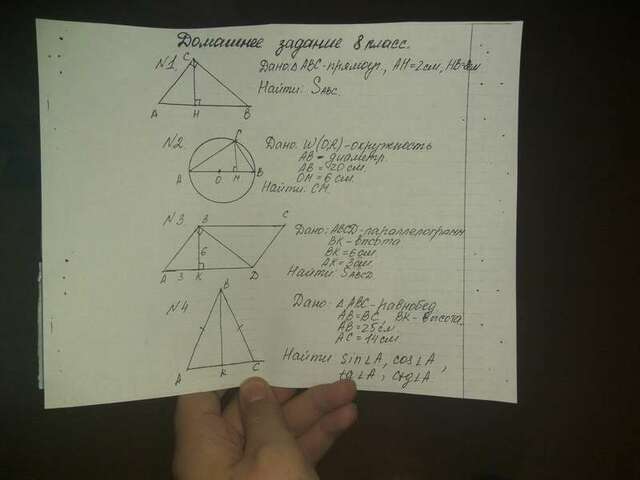 Домашнее задание 8 класс.
N1.
C
A H B
Дано: Δ ABC - прямоуг., AH = 2 см, HB =
Найти: SABC.
N2
C
A O M B
Дано: W(O,R) - окружность
AB - диаметр.
AB = 20 см.
OM = 6 см.
Найти: CM.
N3
B C
6
A 3 K D
Дано: ABCD - параллелограмм
BK - высота
BK = 6 см
AK = 3 см.
Найти: SABCD.
N4
B
A K C
Дано: Δ ABC - равнобед.
AB = BC BK - высота.
AB = 25 см
AC = 14 см.
Найти sin∠A, cos∠A,
tg∠A, ctg∠A